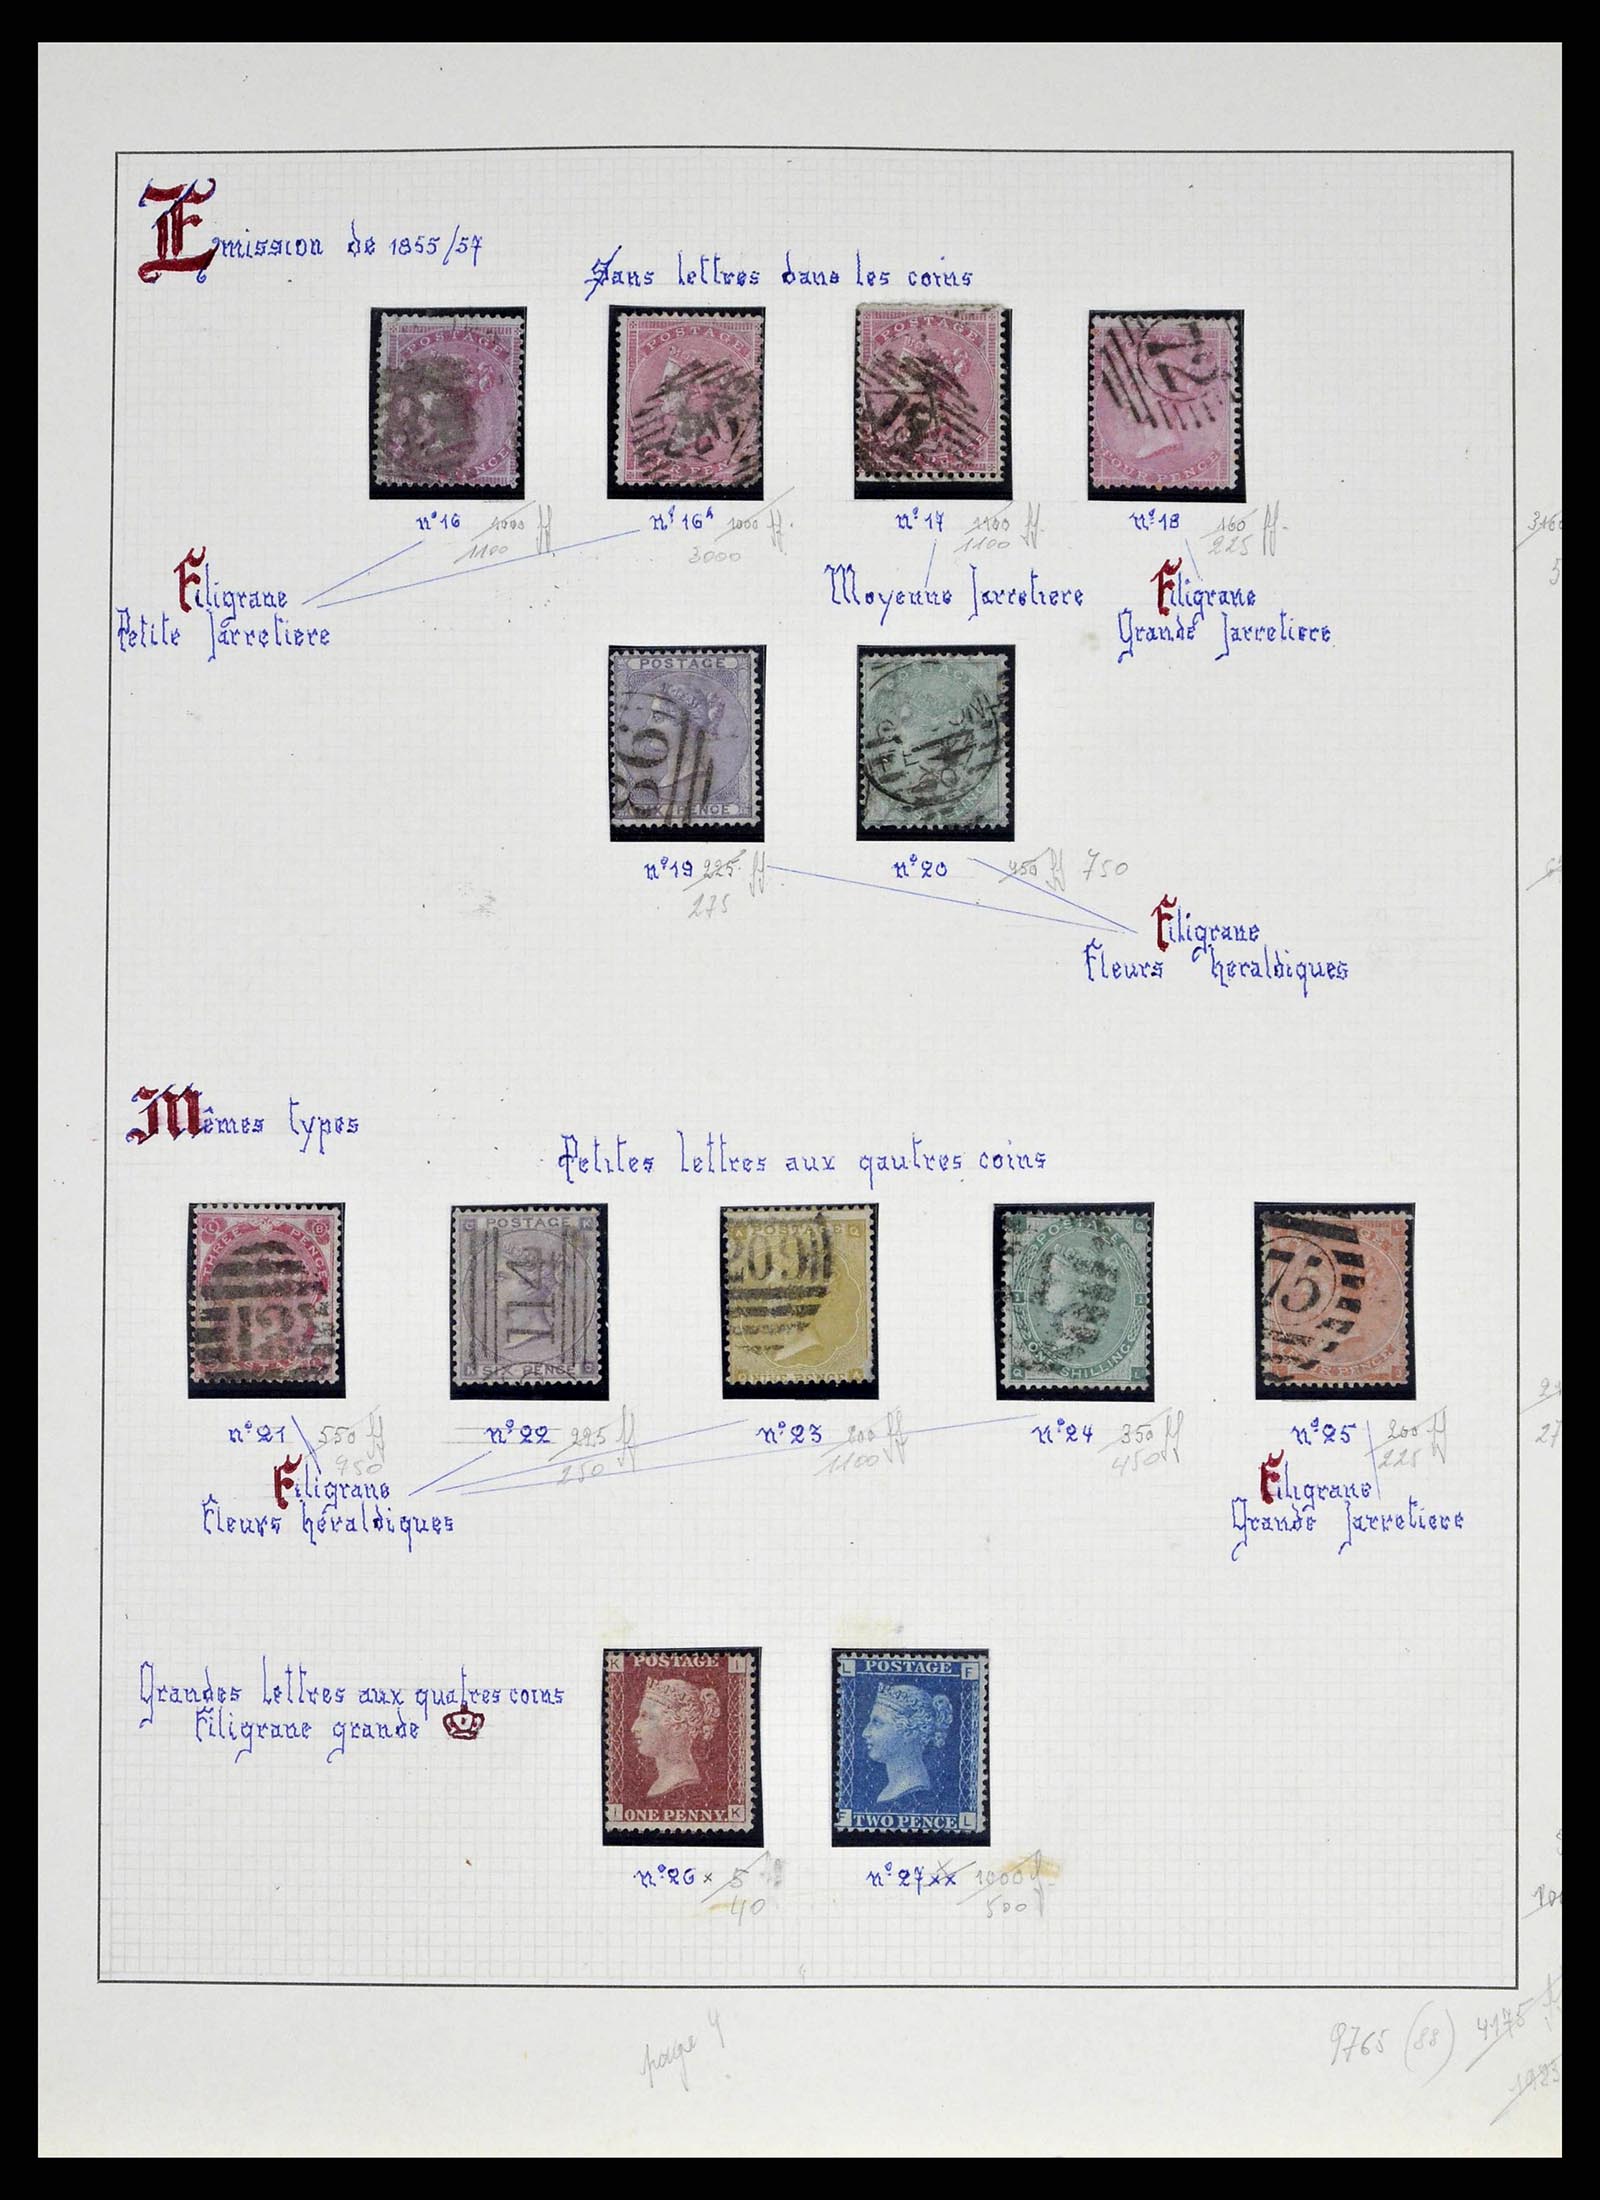 Emission de 1855/57
Sans lettres dans les coins
POSTAGE
POSTAGE
POSTAGE
12
FOUR PENCE
n°16 1000 ff
1100
n°16ª 1000 ff.
3000
n°17 1100 ff.
1100
n°18 160 ff.
225
3160
5
Filigrane
Petite Jarretiere
Moyenne Jarretiere
Filigrane
Grande Jarretiere
POSTAGE
98
SIX PENCE
POSTAGE
n°19 225 ff.
275
n°20 450 ff 750
Filigrane
Fleurs heraldiques
Mêmes types
Petites lettres aux qautres coins
L B
THREE PENCE
12
POSTAGE K
V14
SIX PENCE
POSTAGE Q
209
NINE PENCE
POSTAGE
ONE SHILLING
75
FOUR PENCE
n°21 550 ff
950
n°22 225 ff
250
n°23 200 ff
1100
n°24 350 ff
450
n°25 200 ff
225
27
Filigrane
Fleurs héraldiques
Filigrane
Grande Jarretiere
Grandes lettres aux quatres coins
Filigrane grande
K POSTAGE I
I ONE PENNY. K
L POSTAGE F
F TWO PENCE L
n°26 x 5
40
n°27 xx 1000 f.
500
page 4
9765 (88) 4175 f
1983